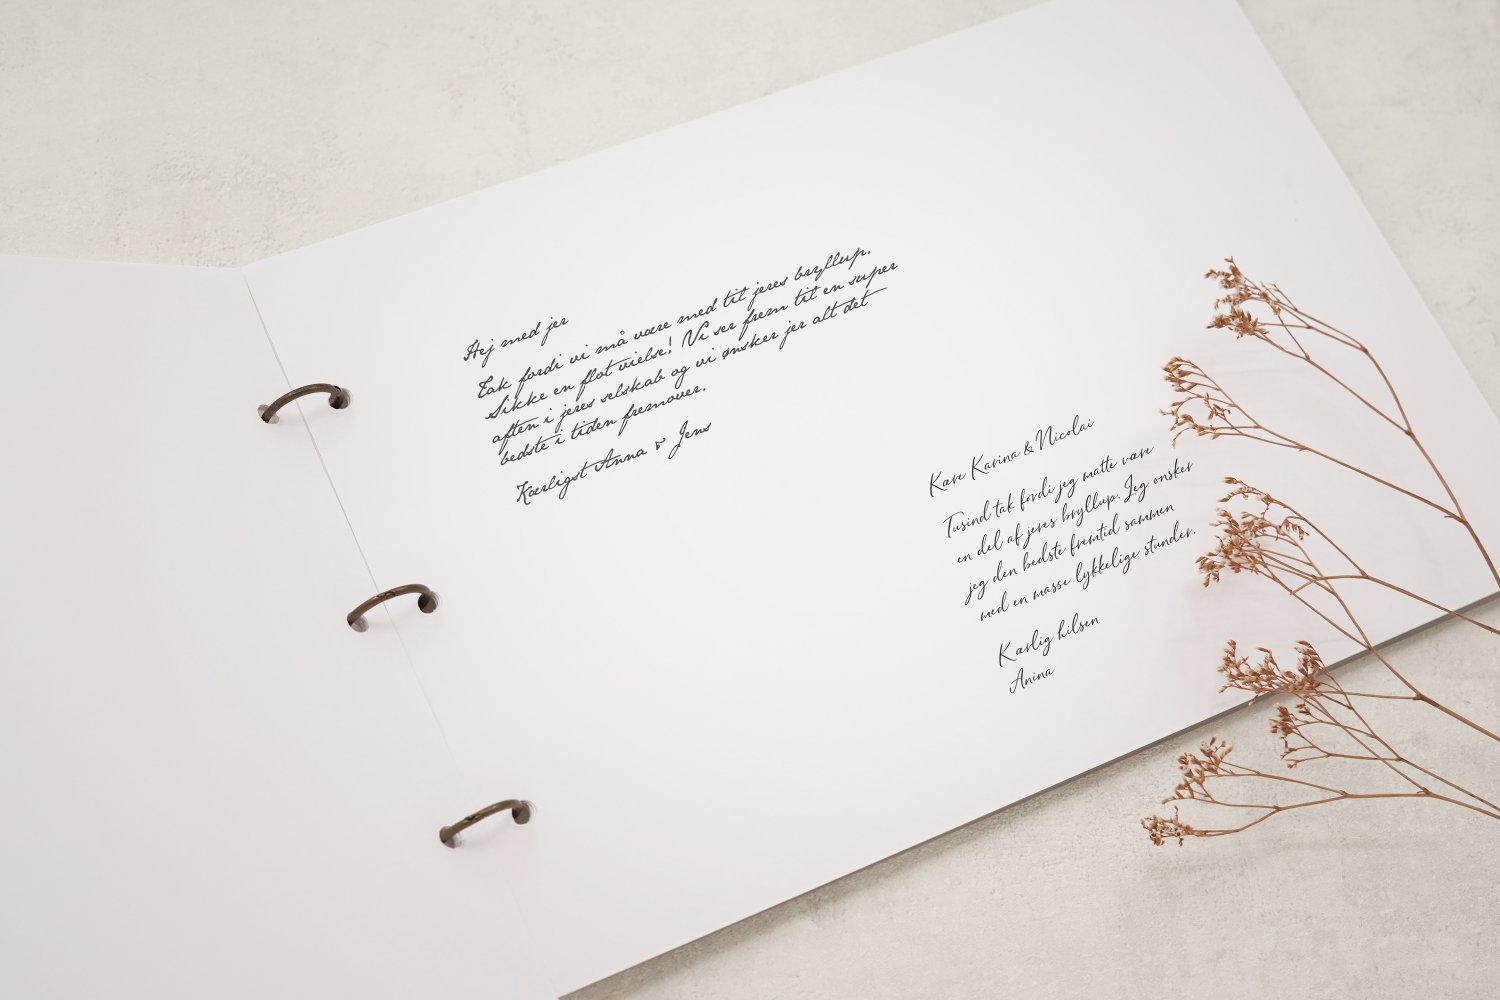 Hej med jer
Tak fordi vi må være med til jeres bryllup.
Sikke en flot vielse! Vi ser frem til en super
aften i jeres selskab og vi ønsker jer alt det
bedste i tiden fremover.
Kærligst Anna & Jens
Kare Karina & Nicolai
Tusind tak fordi jeg matte vare
en del af jeres bryllup. Jeg onsker
jeg den bedste fremtid sammen
med en masse lykkelige stunder.
Karlig hilsen
Anina